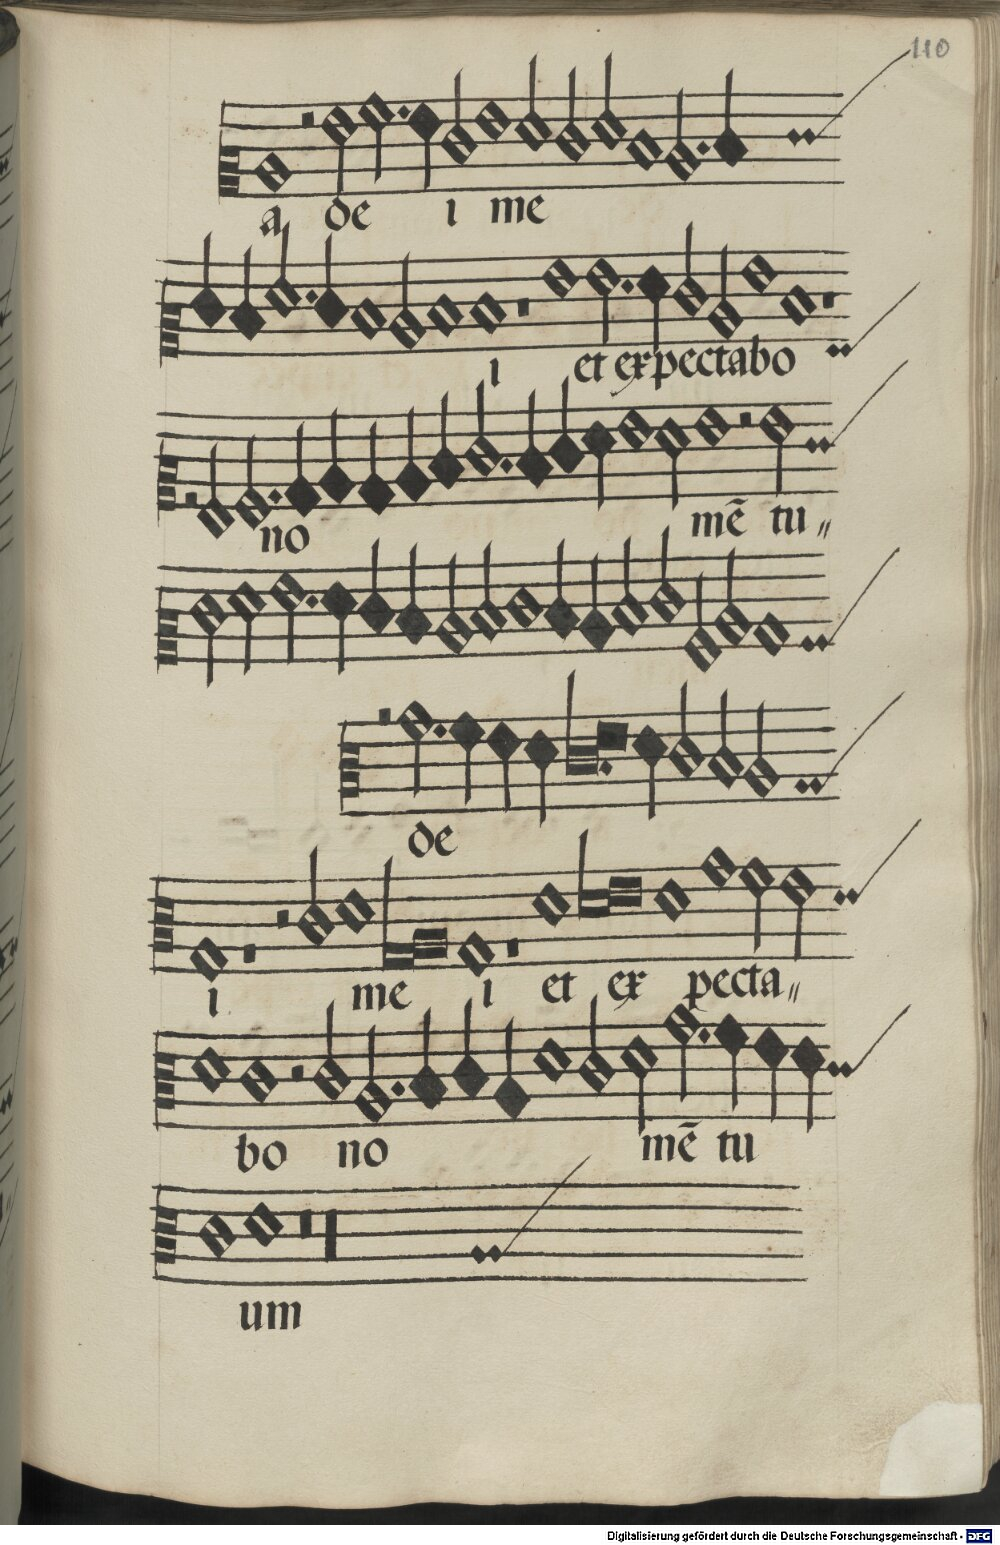 110
a de i me
i et expectabo
no mẽ tu〃
de
i me i et ex pecta〃
bo no mẽ tu
um
Digitalisierung gefördert durch die Deutsche Forschungsgemeinschaft - DFG